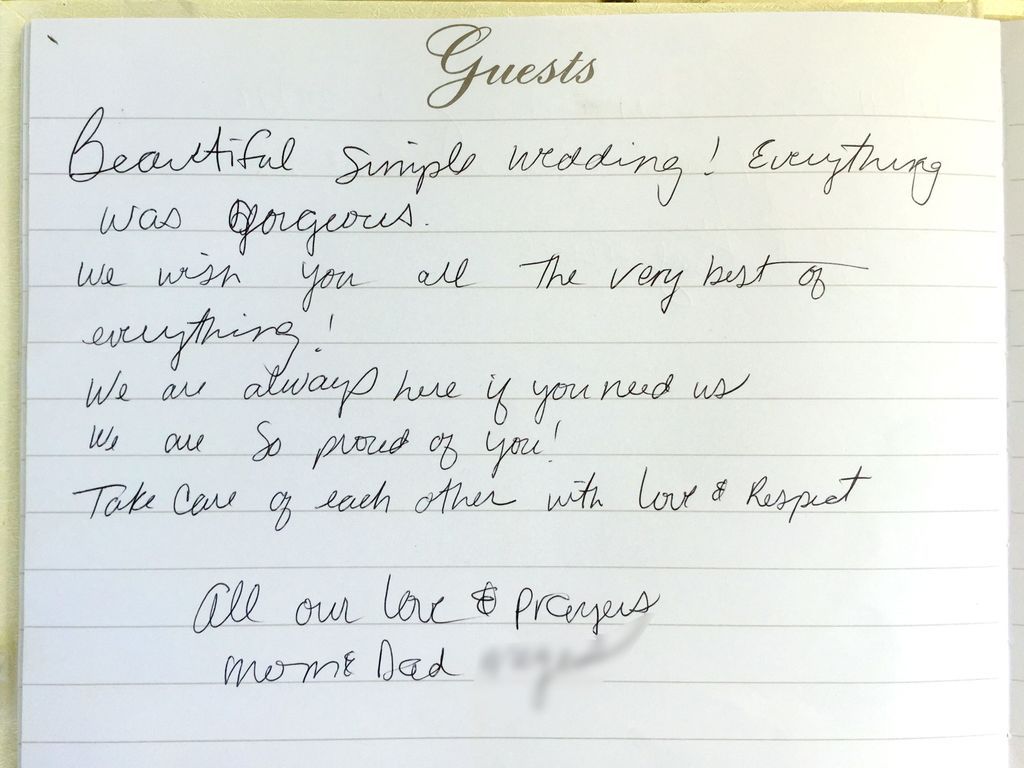 Guests
Beautiful Simple wedding! Everything
was gorgeous.
We wish you all the very best of
everything!
We are always here if you need us
We are so proud of you!
Take Care of each other with love & Respect
All our love & prayers
Mom & Dad